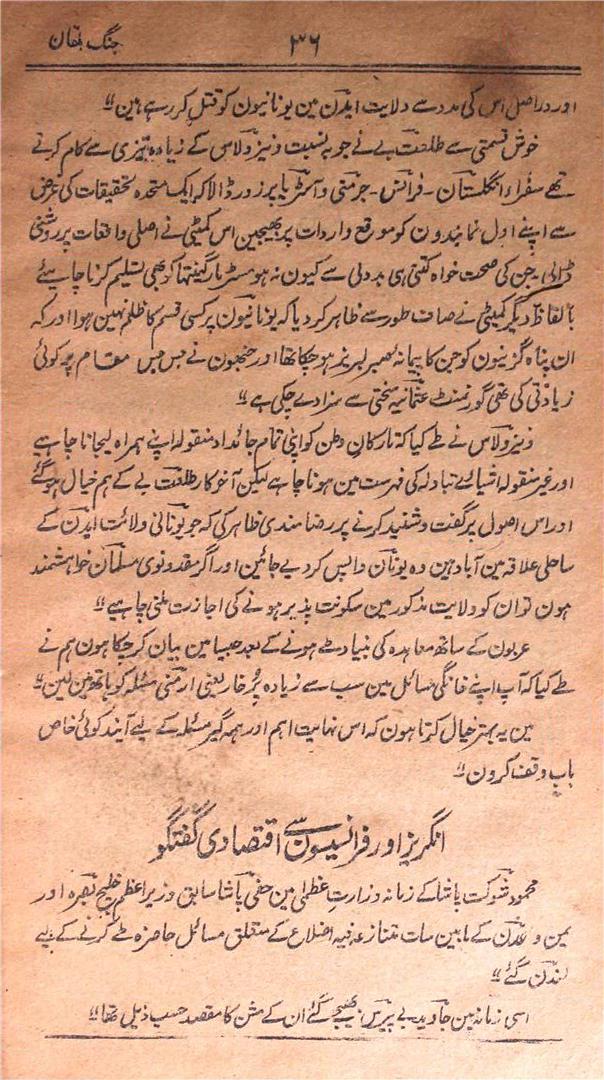 ۳۶
جنگ بلقان
اور دراصل اس کی مدد سے ولایت ایدن مین یونانیون کو قتل کر رہے ہین"
خوش قسمتی سے طلعت بے نے جو بہ نسبت ونیزولاس کے زیادہ تیزی سے کام کرتے
تھے سفراء انگلستان - فرانس - جرمنی و آسٹریا پر زور ڈالا کہ ایک متحدہ تحقیقات کی غرض
سے اپنے اول نمایندون کو موقع واردات پر بھیجین اس کمیٹی نے اصلی واقعات پر روشنی
ڈالی جن کی صحت خواہ کتنی ہی بددلی سے کیون نہ ہو مسٹر مارگینتھا کو بھی تسلیم کرنا چاہیئے
بالفاظ دیگر کمیٹی نے صاف طور سے ظاہر کر دیا کہ یونانیون پر کسی قسم کا ظلم نہین ہوا اور کہ
ان پناہ گزینون کو جن کا پیمانۂ صبر لبریز ہو چکا تھا اور جنھون نے جس جس مقام پر کوئی
زیادتی کی تھی گورنمنٹ عثمانیہ سختی سے سزا دے چکی ہے"
ونیزولاس نے طے کیا کہ تارکان وطن کو اپنی تمام جائداد منقولہ اپنے ہمراہ لیجانا چاہیے
اور غیر منقولہ اشیائے تبادلہ کی فہرست مین ہونا چاہیے لیکن آخر کار طلعت بے کے ہم خیال ہو گئے
اور اس اصول پر گفت و شنید کرنے پر رضامندی ظاہر کی کہ جو یونانی ولائت ایدن کے
ساحلی علاقہ مین آباد ہین وہ یونان واپس کر دیے جائین اور اگر مقدونوی مسلمان خواہشمند
ہون تو ان کو ولایت مذکور مین سکونت پذیر ہونے کی اجازت ملنی چاہیے"
عربون کے ساتھ معاہدہ کی بنیاد طے ہونے کے بعد جیسا مین بیان کر چکا ہون ہم نے
طے کیا کہ آپ اپنے خانگی مسائل مین سب سے زیادہ پُر خار یعنی ارمنی مسئلہ کو ہاتھ مین لین"
مین یہ بہتر خیال کرتا ہون کہ اس نہایت اہم اور ہمہ گیر مسئلہ کے لیے آیندہ کوئی خاص
باب وقف کرون"
انگریز اور فرانسیسون سے اقتصادی گفتگو
محمود شوکت پاشا کے زمانہ وزارت عظمیٰ مین حقی پاشا سابق وزیر اعظم خلیج بصرہ اور
یمن و عدن کے مابین سات متنازعہ فیہ اضلاع کے متعلق مسائل حاضرہ طے کرنے کے لیے
لندن گئے"
اسی زمانہ مین جاوید بے پیرس بھیجے گئے ان کے مشن کا مقصد حسب ذیل تھا"